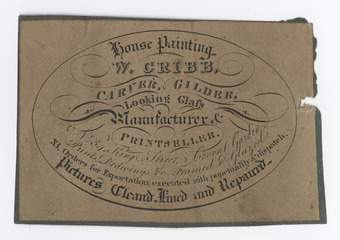 House Painting.
W. CRIBB,
CARVER, GILDER,
Looking Glaſs
Manufacturer, &
PRINTSELLER.
King Street, Covent Garden
Prints, Drawings, &c. Framed & Glazed
N.B. Orders for Exportation executed with punctuality & dispatch.
Pictures Clean'd, Lined and Repaired.